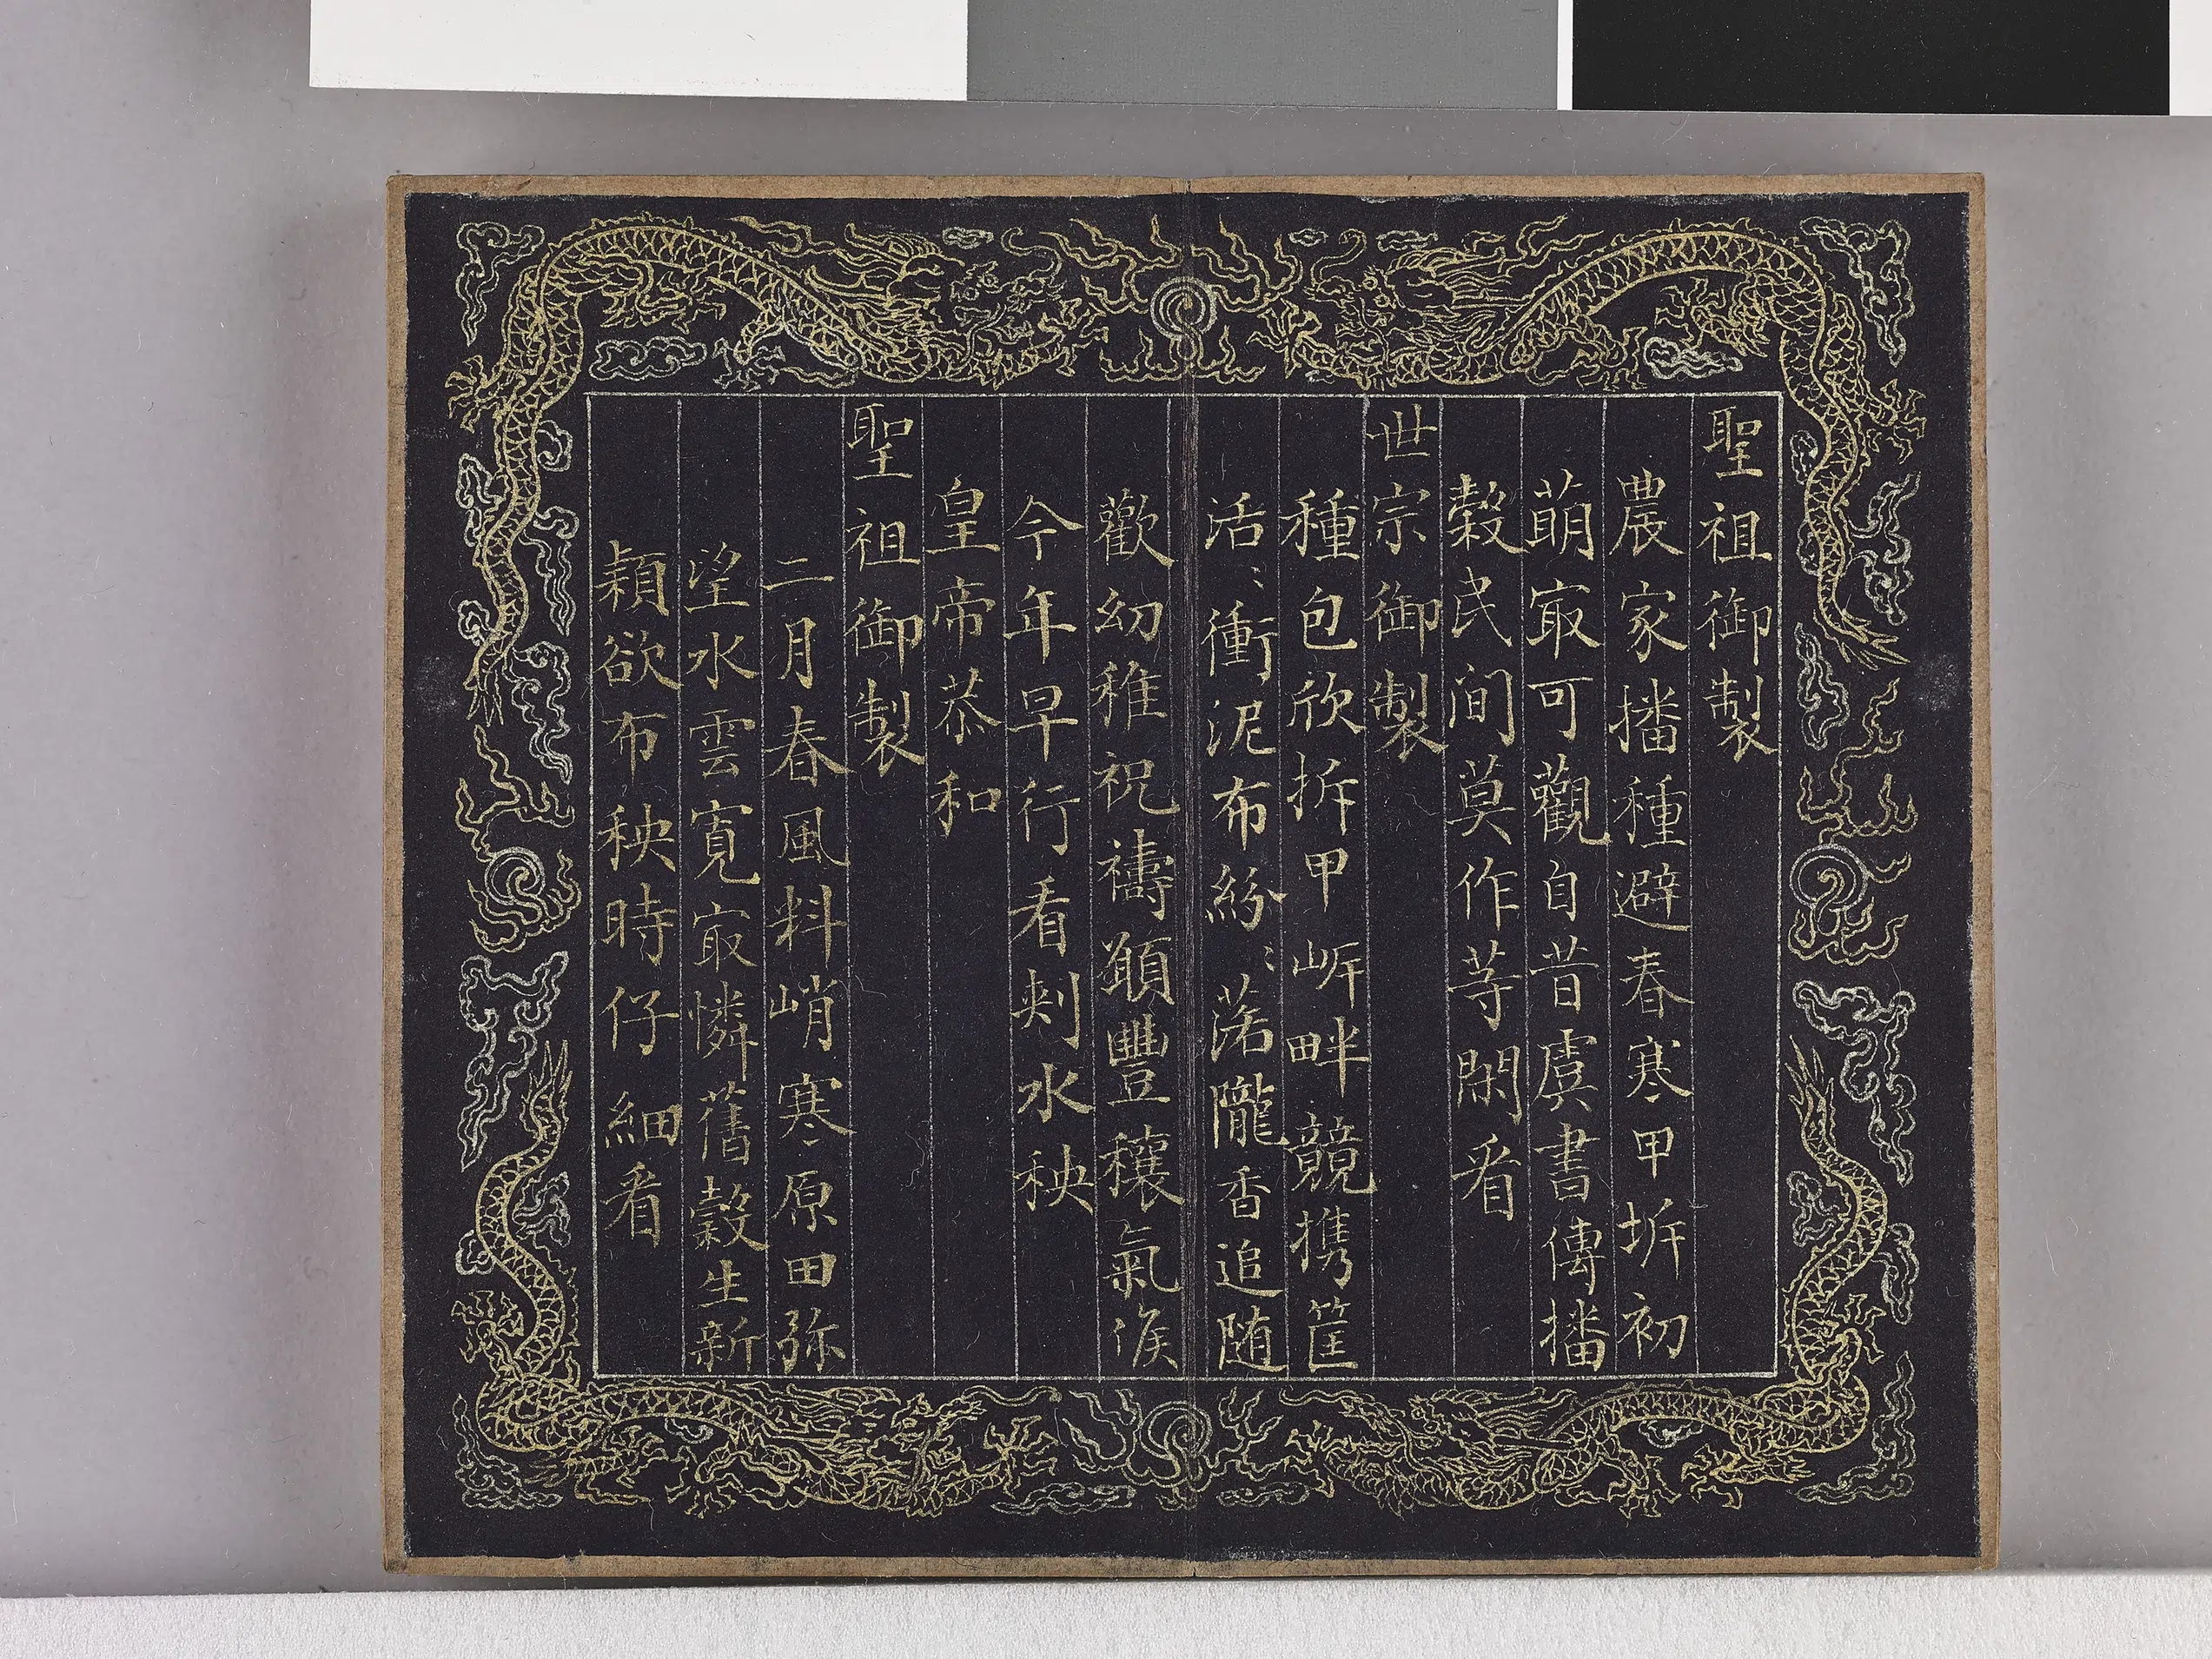 聖祖御製
農家播種避春寒甲坼初
萌㝡可觀自昔虞書傳播
榖民间莫作等閑看
世宗御製
種包欣拆甲岓畔競携筐
活〻衝泥布紛〻落隴香追随
歡幼稚祝禱顲豐穰氣候
今年早行看刾水秧
皇帝恭和
聖祖御製
二月春風料峭寒原田弥
望水雲寬㝡憐舊榖生新
穎欲布秧時仔細看